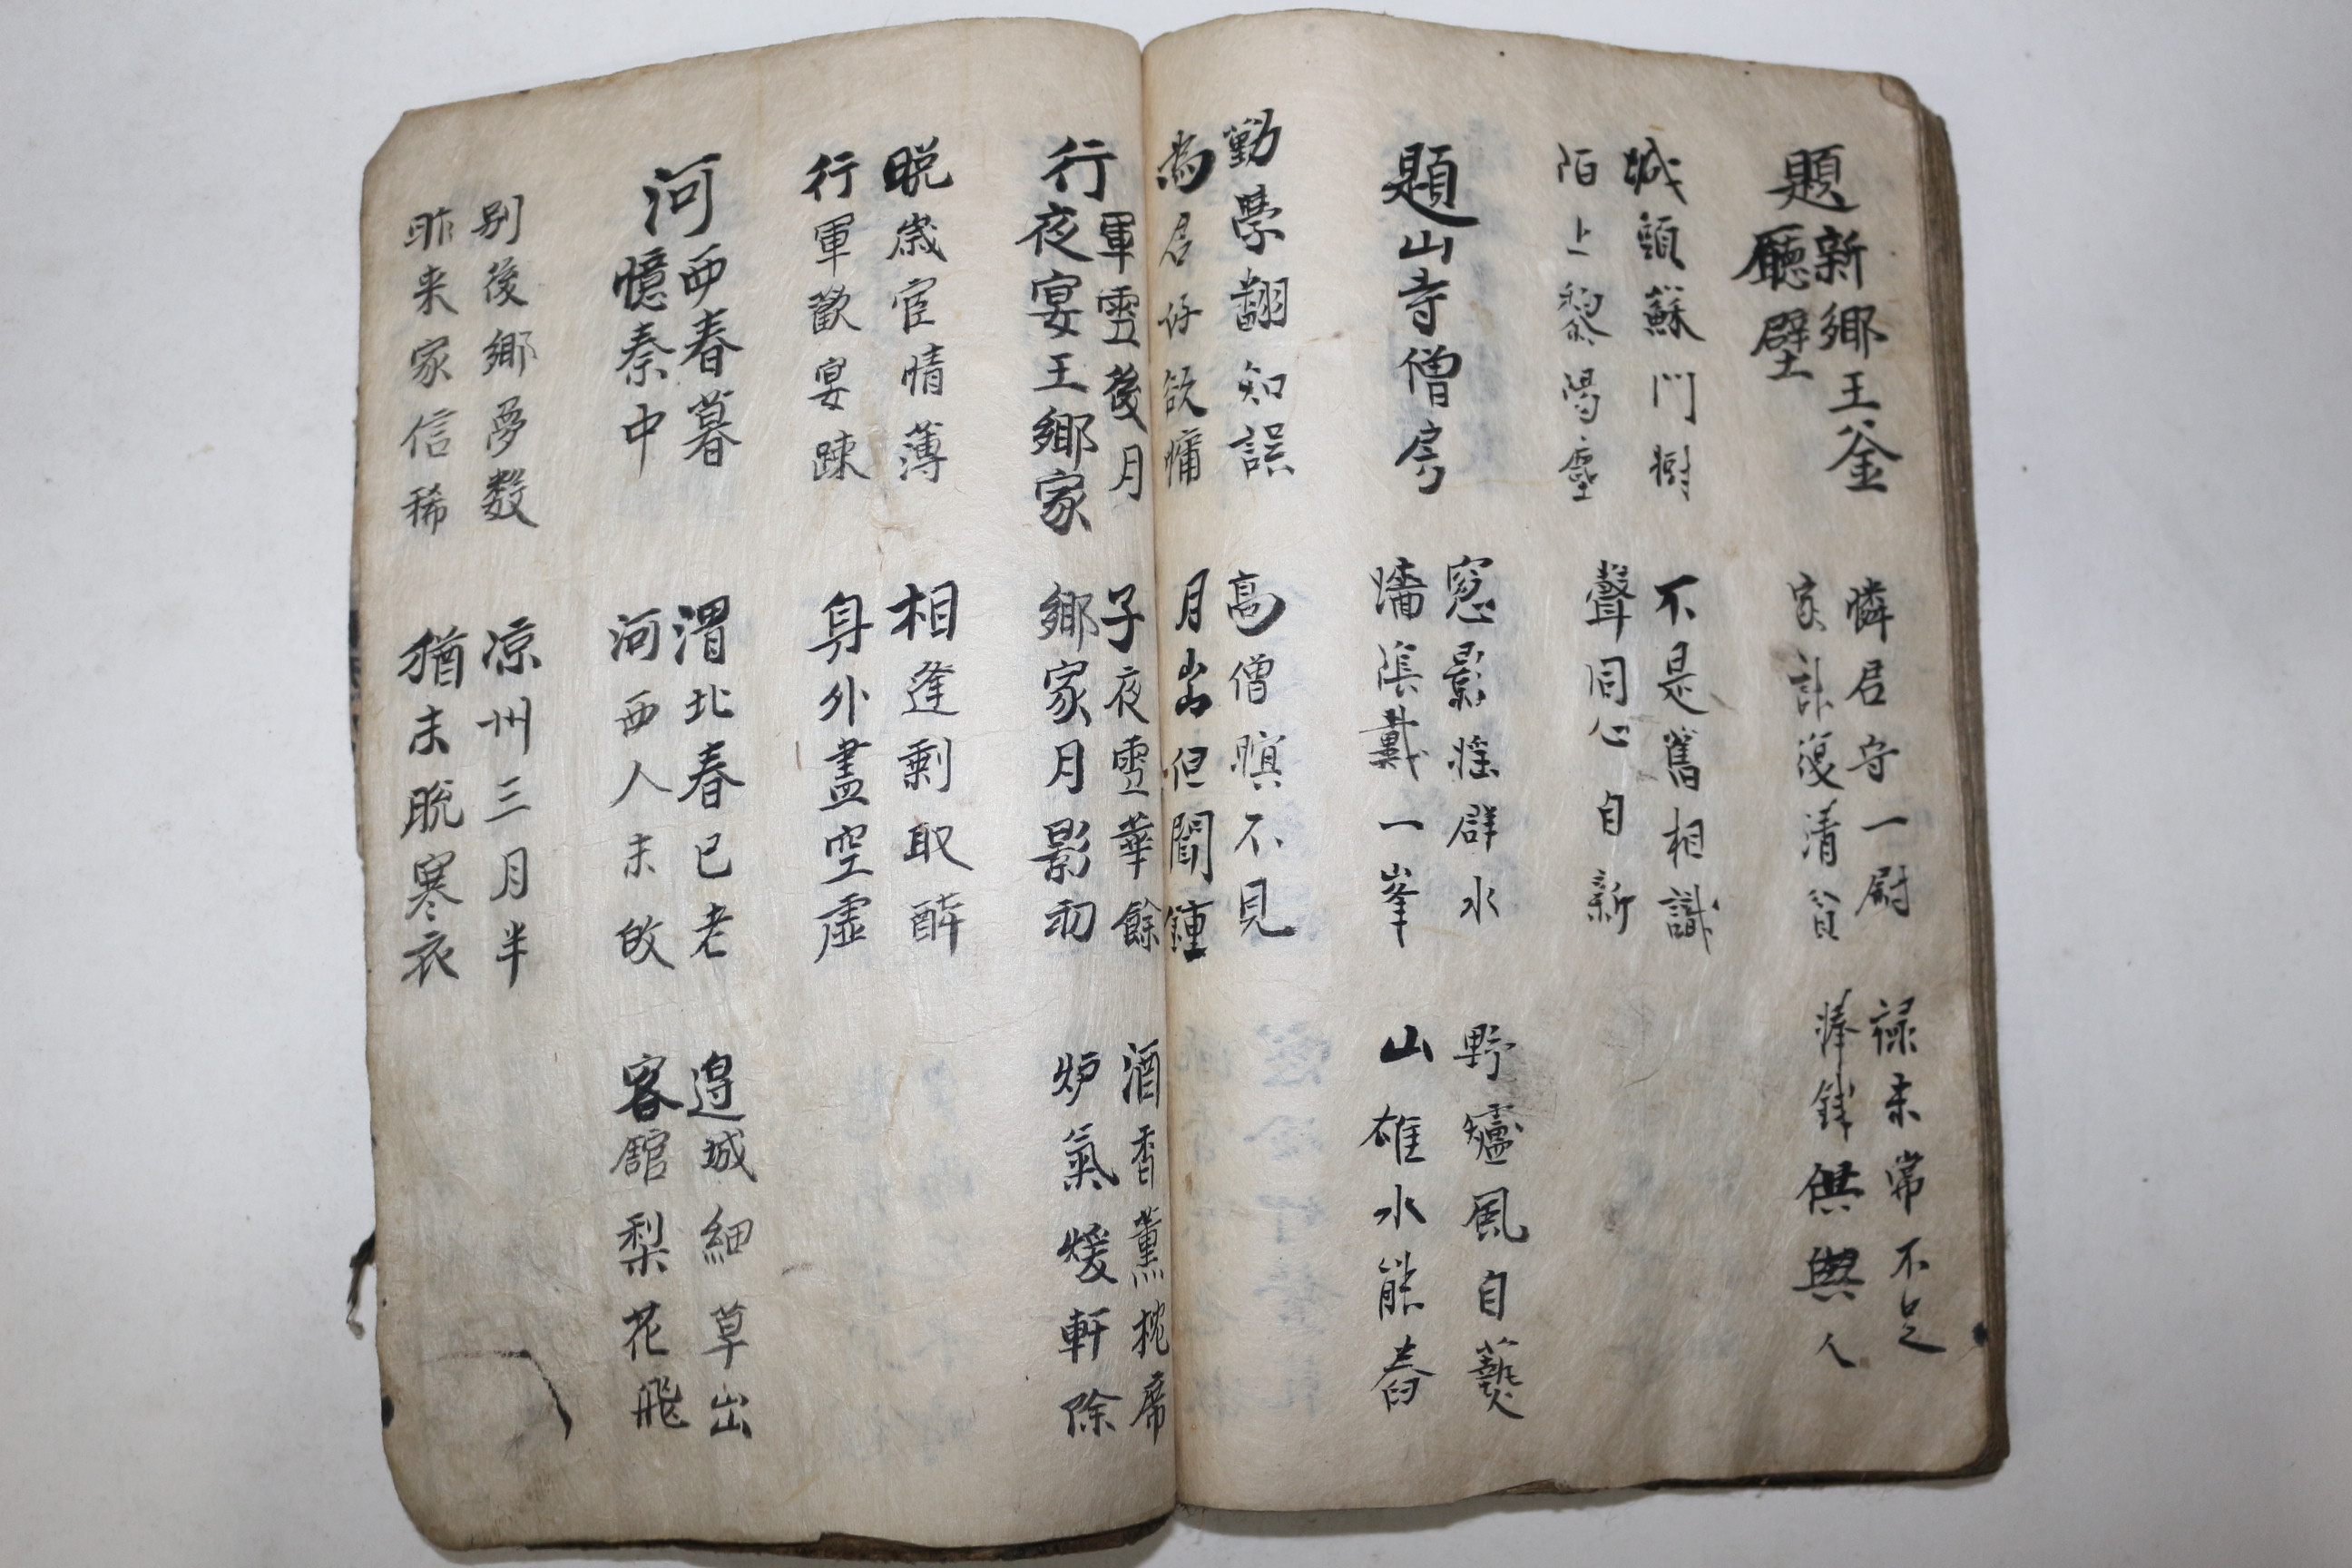 題新鄉王釜
廳壁
憐君守一尉 祿未常不足
家計復清貧 俸錢供與人
城頭蘇門樹 不是舊相識
陌上黎陽塵 聲同心自新
題山寺僧房
窓影搖群水 野爐風自爇
墻陰戴一峯 山雄水能舂
勤學翻知誤 高僧瞑不見
為君好欲慵 月出但聞鍾
行軍雪後月
夜宴王鄉家
子夜雪華餘 酒香薰枕席
鄉家月影初 炉氣煖軒除
脫歲宦情薄 相逢剩取醉
行軍歡宴踈 身外盡空虛
河西春暮
憶秦中
渭北春已老 邊城細草出
河西人未 客館梨花飛
別後鄉夢数 凉州三月半
昨来家信稀 猶未脫寒衣